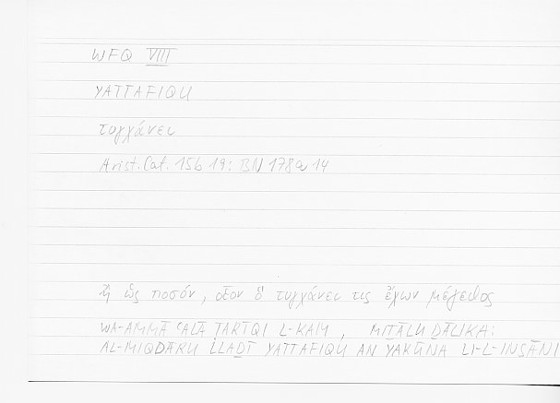 WFQ VIII
YATTAFIQU
τυγχάνει
Arist. Cat. 15b 19; BN 178a 14
ἢ ὡς ποσόν, οἷον ὃ τυγχάνει τις ἔχων μέγεθος
WA-AMMĀ ʿALĀ ṬARĪQI L-KAM, MIṮĀLU ḎĀLIKA:
AL-MIQDĀRU LLAḎĪ YATTAFIQU AN YAKŪNA LI-L-INSĀNI